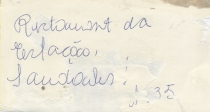 Restaurant da
estação,
Saudades
35